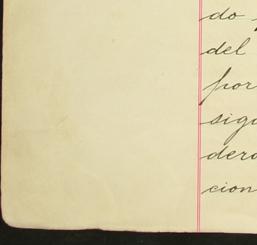 do
del
por
sigu
dera
cion